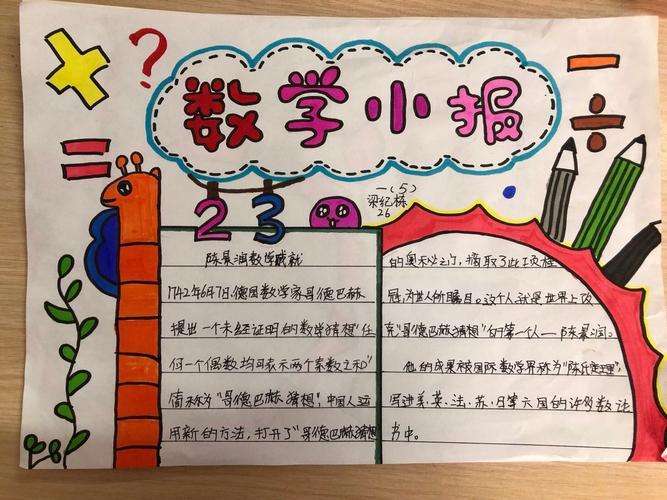 数学小报
一(5)
梁纪栋
26
23
陈景润数学成就
1742年6月7日,德国数学家哥德巴赫
提出一个未经证明的数学猜想“任
何一个偶数均可表示两个素数之和”
简称为“哥德巴赫猜想”,中国人运
用新的方法,打开了“哥德巴赫猜想
的奥秘之门,摘取了此项桂
冠,为世人所瞩目。这个人就是世界上攻
克“哥德巴赫猜想”的第一人——陈景润。
他的成果被国际数学界称为“陈氏定理”,
写进美、英、法、苏、日等六国的许多数论
书中。